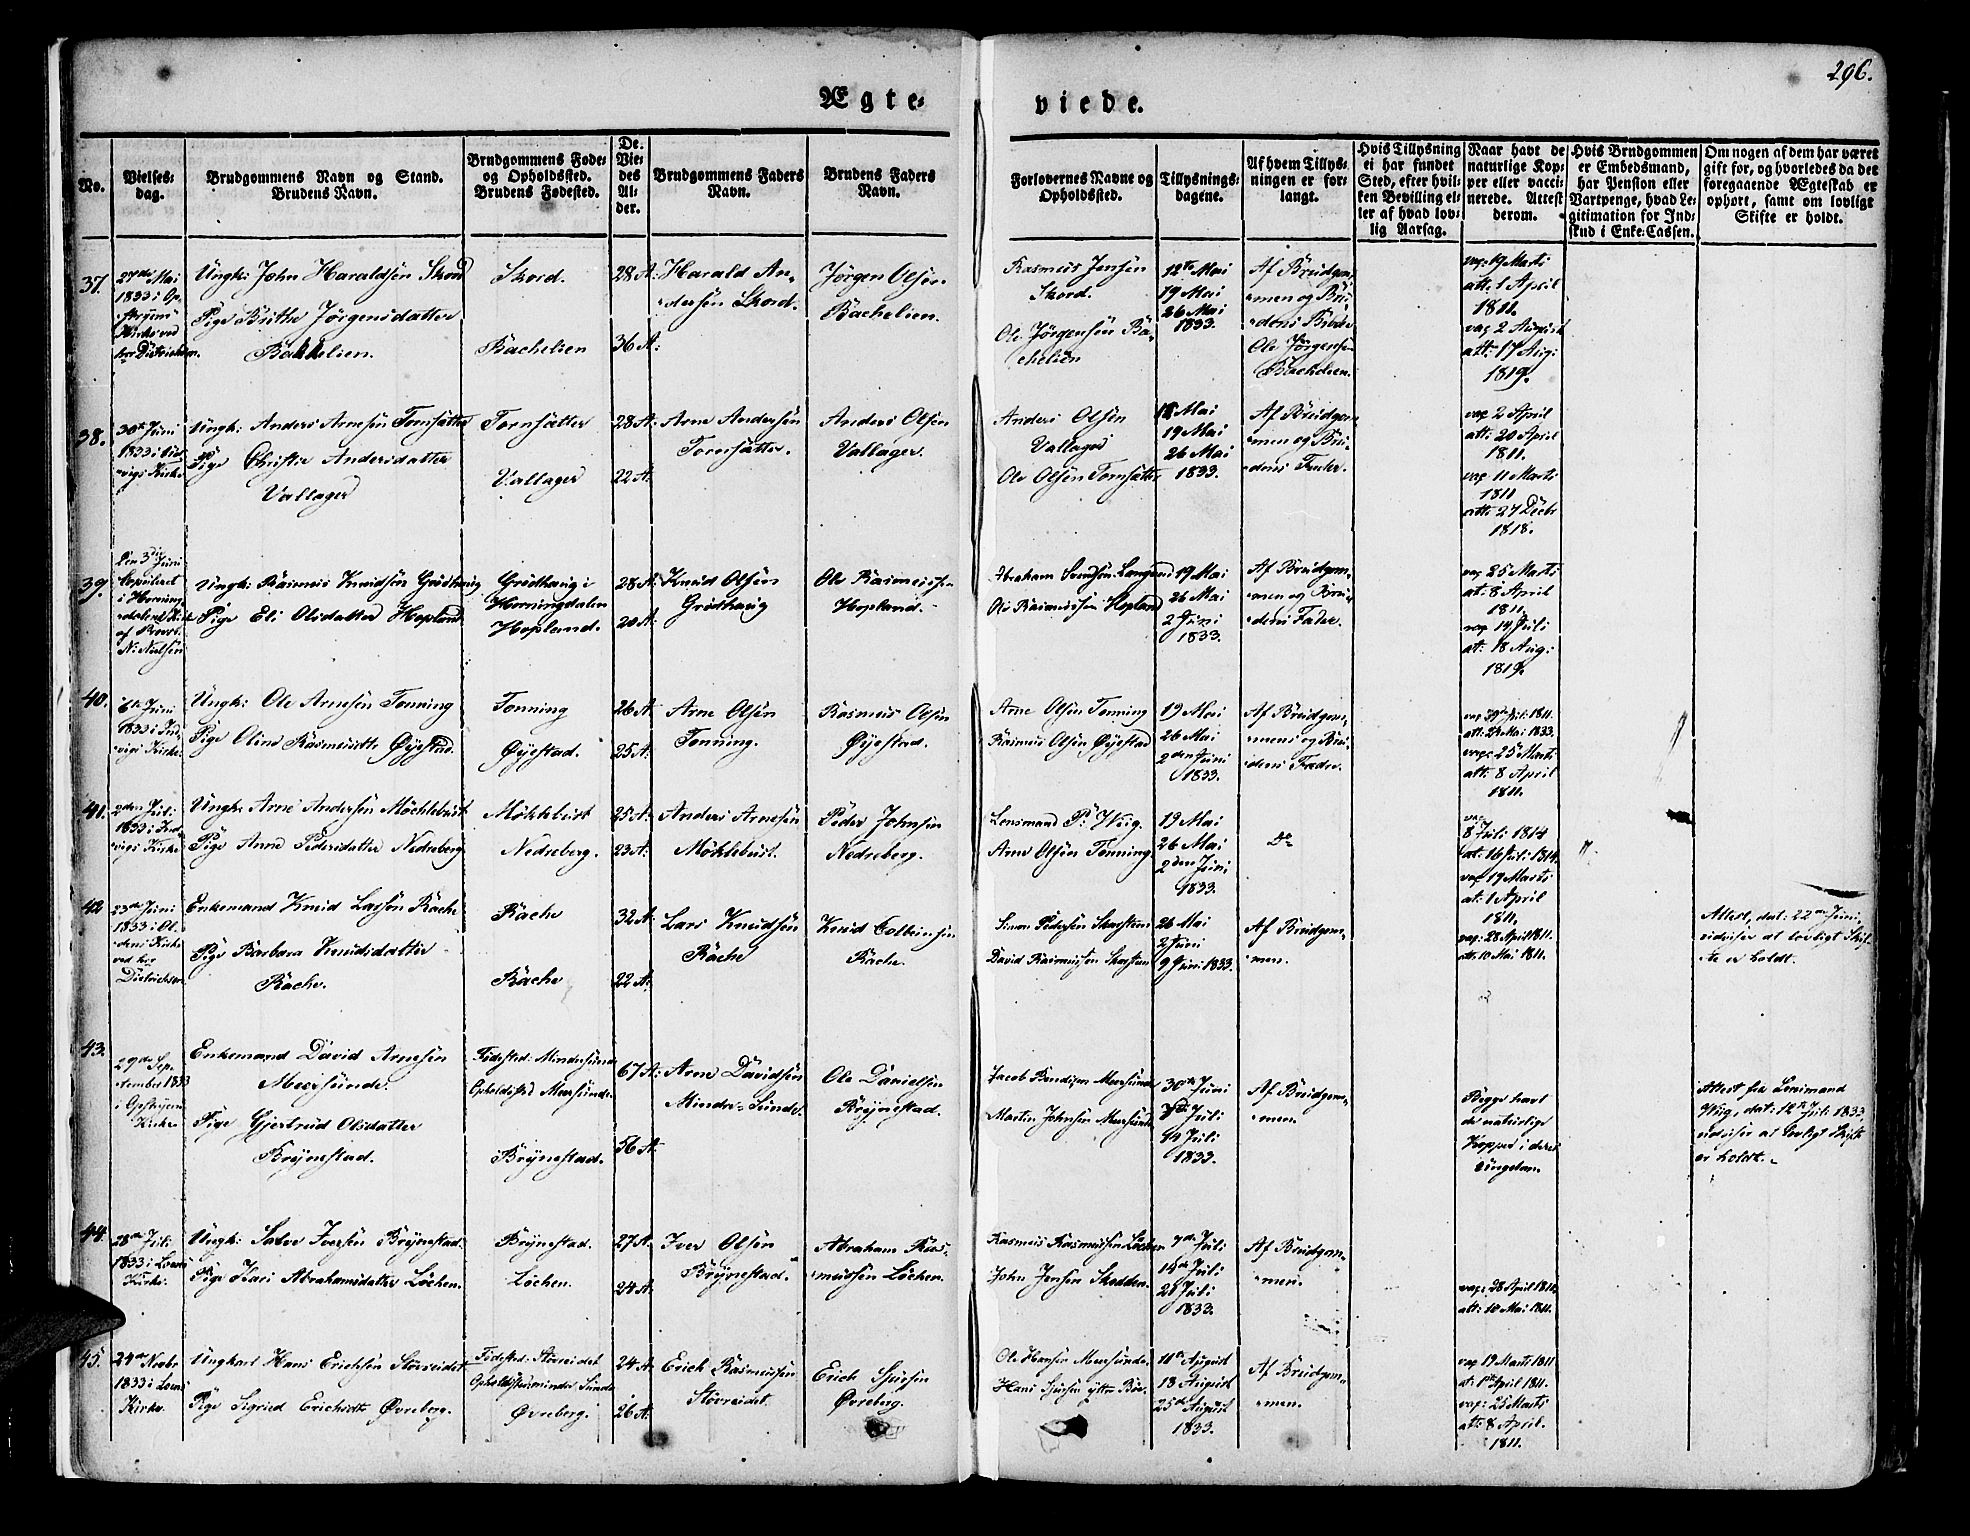 296.
Ægte-
viede.
No.
Vielses-
dag.
Brudgommens Navn og Stand.
Brudens Navn.
Brudgommens Føde-
og Opholdssted.
Brudens Fødested.
De
Vie-
des
Al-
der.
Brudgommens Faders
Navn.
Brudens Faders
Navn.
Forlovernes Navne og
Opholdssted.
Tillysnings-
dagene.
Af hvem Tillys-
ningen er for-
langt.
Hvis Tillysning
ei har fundet
Sted, efter hvil-
ken Bevilling el-
ler af hvad lov-
lig Aarsag.
Naar havt de
naturlige Kop-
per eller vacci-
nerede. Attest
derom.
Hvis Brudgommen
er Embedsmand,
har Pension eller
Vartpenge, hvad Le-
gitimation for Ind-
skud i Enke-Cassen.
Om nogen af dem har været
gift før, og hvorledes da det
foregaaende Ægteskab er
ophørt, samt om lovligt
Skifte er holdt.
37.
27de Mai
1833 i Op-
Kirke ved
hr Dietrichson.
Ungk: John Haraldsen Skord
Pige Brithe Jørgensdatter
Bakkelien.
Skord.
Bachelien
28 A:
36 A:
Harald An-
dersen Skord.
Jørgen Olsen
Bachelien.
Rasmus Jensen
Skord.
Ole Jørgensen Ba-
chelien
12te Mai
19 Mai
26 Mai
1833.
Af Brudgom-
men og Bru-
dens Broder
Ole Jørgensen
Bachelien.
vac 19 Marts
att: 1 April
1811.
vac 2 August
att: 17 Aug:
1819.
38.
30te Juni
1833 i Ind-
vigs Kirke
Ungk: Anders Arnesen Tornsætter
Pige Christie Andersdatter
Vallager
Tornsætter
Vallager
28 A:
22 A:
Arne Andersen
Tornsætter.
Anders Olsen
Vallager.
Anders Olsen
Vallager
Ole Olsen Tornsætter
12 Mai
19 Mai
26 Mai
1833.
Af Brudgom-
men og Bru-
dens Fader.
vac 2 April
att: 20 April
1811.
vac 11 Marts
1811
att: 27 Decbr
1818.
39.
den 3die Juni
Copuleret
i Horning-
dalens Kirke
af Provst
N: Nielsen
Ungk: Rasmus Knudsen Grødhaug
Pige Eli Olsdatter Hopland
Grødhaug i
Horningdalen
Hopland.
28 A:
20 A:
Knud Olsen
Grødhaug
Ole Rasmussen
Hopland.
Abraham Svendsen Langsæd
Ole Rasmussen Hopland
19 Mai
26 Mai
2 Juni
1833.
Af Brudgom-
men og Bru-
dens Fader.
vac 25 Marts
at: 8 April
1811.
vac 14 Juli
at: 18 Aug:
1819.
40.
6te Juni
1833 i Ind-
vigs Kirke
Ungk: Ole Arnesen Tonning
Pige Oline Rasmusdtr Øyestad.
Tonning
Øyestad.
26 A:
25 A:
Arne Olsen
Tonning.
Rasmus Olsen
Øyestad.
Arne Olsen Tonning
Rasmus Olsen Øyestad
19 Mai
26 Mai
2den Juni
1833.
Af Brudgom-
mens og Bru-
dens Fader.
att: 24 Mai 1833.
vac: 25 Marts
att: 8 April
1811.
41.
2den Juli
1833 i Ind-
vigs Kirke
Ungk: Arne Andersen Möchlebust
Pige Anne Pedersdatter Nedreberg
Möklebust
Nedreberg.
25 A:
23 A:
Anders Arnesen
Möklebust.
Peder Johnsen
Nedreberg.
Lensmand P: Wiig.
Arne Olsen Tonning.
19 Mai
26 Mai
2den Juni
1833.
Do
vac
8 Juli 1814
at: 16 Juli 1814.
vac 19 Marts
at: 1 April
1811.
42
23de Juni
1833 i Ol-
dens Kirke
ved hr
Dietrichson
Enkemand Knud Larsen Rache
Pige Barbara Knudsdatter
Rache.
Rache
Rache
32 A:
22 A:
Lars Knudsen
Rache
Knud Colbensen
Rache.
Simon Pedersen Skarsteen
David Rasmussen Skarsteen
26 Mai
2 Juni
9 Juni 1833.
Af Brudgom-
men.
vac: 28 April 1811.
att: 10 Mai 1811.
Attest, dat: 22de Juni
udviser at lovligt Skif-
te er holdt.
43.
29de Sep-
tember 1833
i Opstryens
Kirke
Enkemand David Arnesen
Meersunde.
Pige Gjertrud Olsdatter
Brynestad.
Fødested: Mindresunde
Opholdssted Meersunde.
Brynestad.
67 A:
56 A:
Arne Davidsen
Mindre-Sunde.
Ole Danielsen
Brynestad.
Jacob Bendixen Meersunde
Martin Johnsen Meersunde
30te Juni
7de Juli
14 Juli
1833.
Af Brudgom-
men.
Begge havt
de naturlige
Kopper i deres
Ungdom.
Attest fra Lensmand
Wiig, dat: 12te Juli 1833
udviser at lovligt Skifte
er holdt.
44.
28de Juli
1833 i Loens
Kirke.
Ungk: Salve Iversen Brynestad.
Pige Kari Abrahamsdatter Löchen.
Brynestad.
Löchen.
27 A:
24 A:
Iver Olsen
Brynestad.
Abraham Ras-
mussen Löchen.
Rasmus Rasmussen Löchen
John Jensen Skedden.
7de Juli
14de Juli
21 Juli
1833.
Af Brudgom-
men.
vac: 28 April 1811.
att: 10 Mai 1811.
45.
24de Novbr
1833 i Loens
Kirke.
Ungkarl Hans Erichsen Störreidet
Pige Sigried Erichsdtr Øvreberg.
Fødested: Störreidet
Opholdssted minder Sunde
Øvreberg.
24 A:
26 A:
Erich Rasmussen
Störreidet.
Erich Sjursen
Øvreberg.
Ole Hansen Meersunde.
Hans Sjursen ytter Böe.
11te August
18 August
25de August
1833.
Af Brudgom-
men.
vac 19 Marts 1811.
at: 1ste April 1811.
vac: 25 Marts
att: 8 April.
1811.